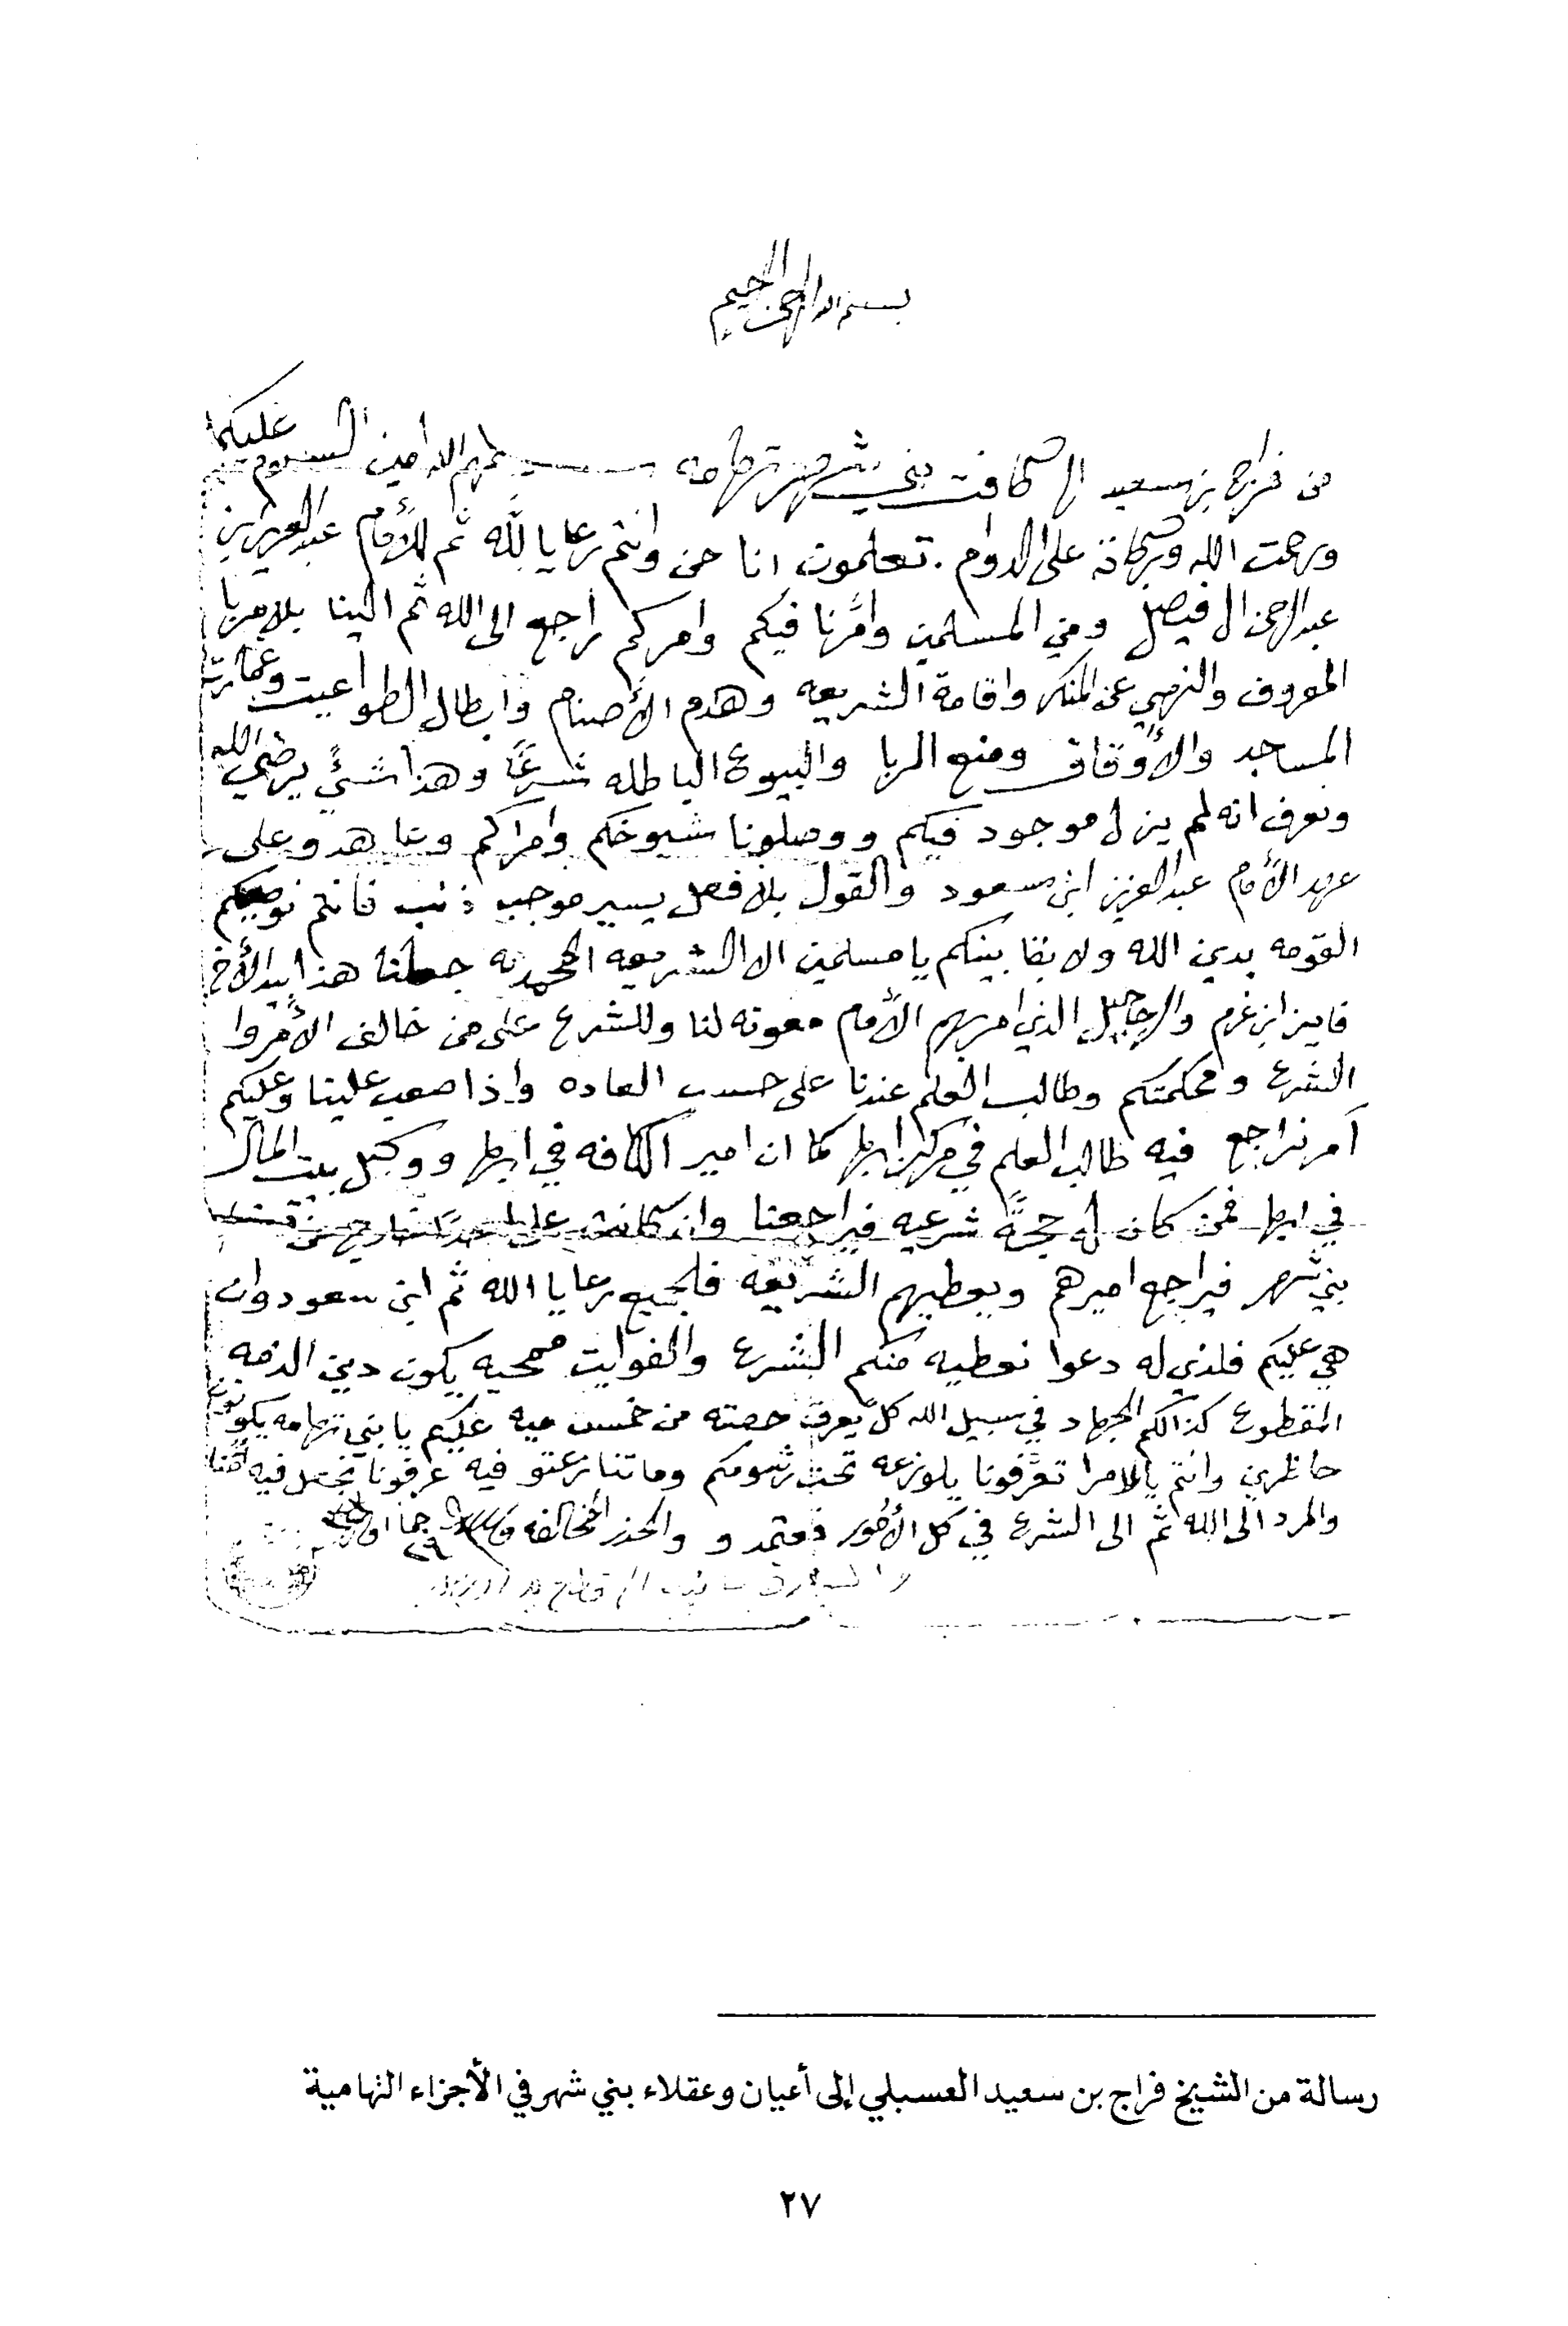 بسم الله الرحمن الرحيم
من فراج بن سعيد الى كافت بني شهر تهامه سلمهم الله امين السلام عليكم
ورحمت الله وبركاته على الدوام . تعلمون انا حن وانتم رعايا لله ثم للأمام عبدالعزيز بن
عبدالرحمن ال فيصل ومن المسلمين وامرنا فيكم وامركم راجع الى الله ثم الينا بلامر با
المعروف والنهي عن المنكر واقامة الشريعه وهدم الأصنام وابطال الطواغيت وعمارت
المساجد والأوقاف ومنع الربا والبيوع الباطله شرعاً وهذا شئ يرضي الله
ونعرف انه لم يزل موجود فيكم ووصلونا شيوخكم وامراكم وعاهدو على
عهد الأمام عبدالعزيز ابن سعود والقول بلا فعل يسير موجب ذنب فانتم نوصيكم
القومه بدين الله ولا بقا بينكم يا مسلمين الا الشريعه المحمديه جعلنا هذا بيد الأخ
فايز ابن غرم والرجاجيل الذي امر بهم الأمام معونه لنا وللشرع على من خالف الأمر وا
الشرع ومحكمتكم وطالب العلم عندنا على حسب العاده واذا صعب علينا وعليكم
امر نراجع فيه طالب العلم في مركز ابها كما ان امير الكافه في ابها ووكيل بيت المال
في ابها فمن كان له حجةً شرعيه فيراجعنا وان كانت على احد خارج عن
بني شهر فيراجع اميرهم ويعطيهم الشريعه فلجميع رعايا الله ثم ابن سعود وان
هي عليكم فلذي له دعوا نعطيه منكم الشرع والفوايت ممحيه يكون دين الذمه
المقطوع كذالكم الجهاد في سبيل الله كل يعرف حصته من خمس ميه عليكم يا بني تهامه يكونون
حاظرين وانتم يالامرا تعرفونا بلوزعه تحت رشومكم وما تنازعتو فيه عرفونا نجعل فيه
والمرد الى الله ثم الى الشرع في كل الأمور فعتمدو والحذر المخالفه
٢٩ جما اول
رسالة من الشيخ فراج بن سعيد العسبلي إلى أعيان وعقلاء بني شهر في الأجزاء التهامية
٢٧